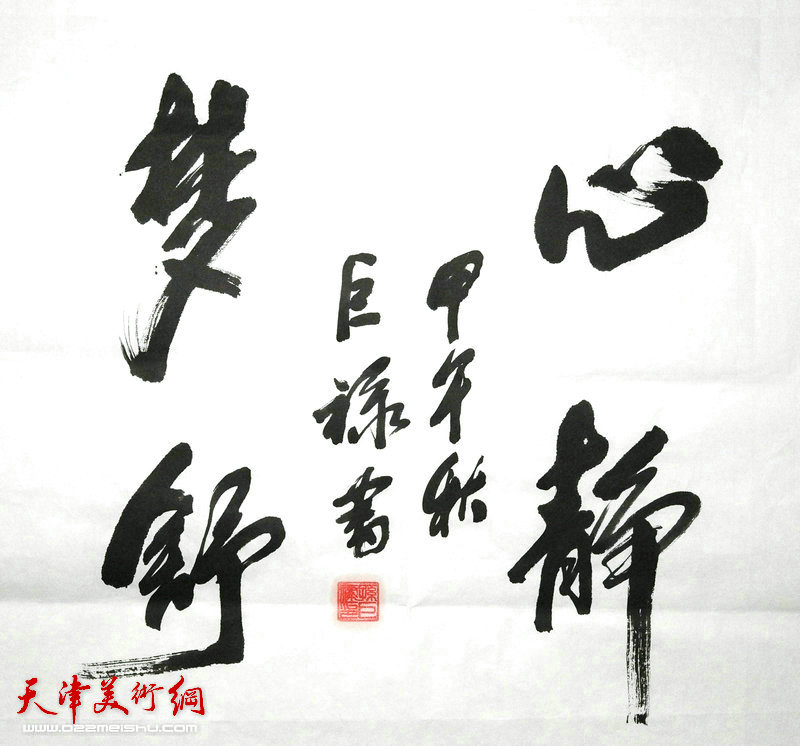 心静
甲午秋
巨禄书
梦舒
天津美術網
www.022meishu.com